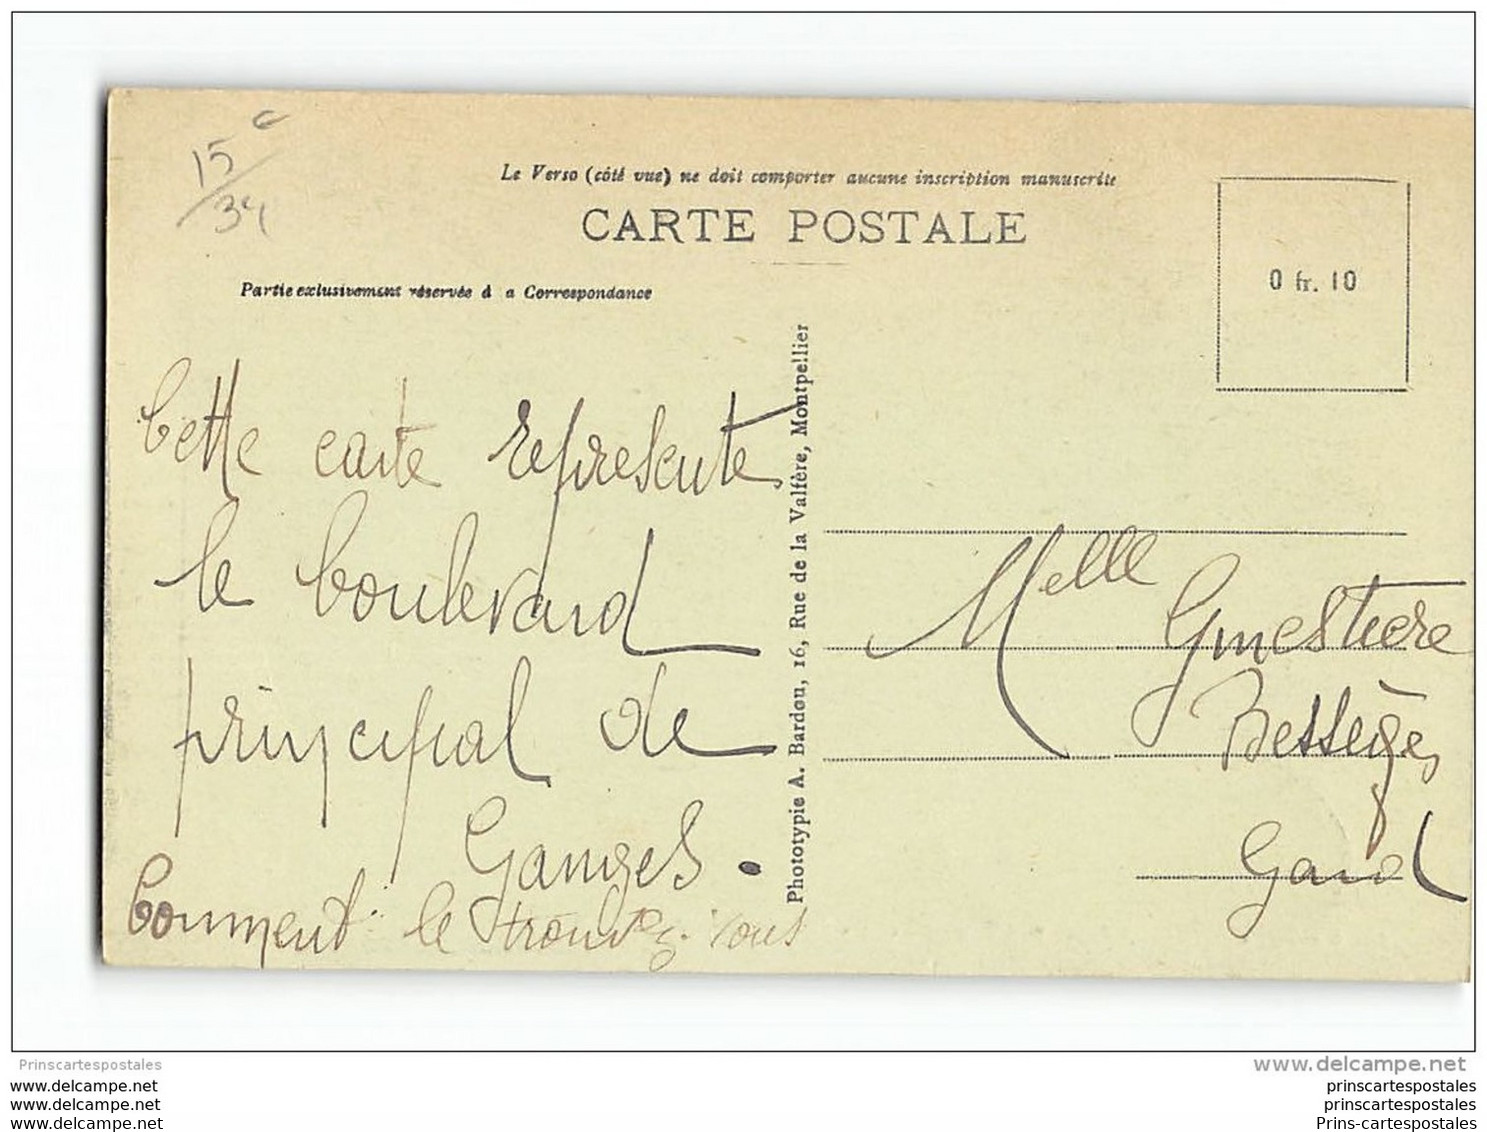 15 €
34
Le Verso (côté vue) ne doit comporter aucune inscription manuscrite
CARTE POSTALE
Partie exclusivement réservée à a Correspondance
0 fr. 10
Cette carte represente
le boulevard
principal de
Ganges.
Comment le trouvez-vous
Phototypie A. Bardou, 16, Rue de la Valfère, Montpellier
Melle Ginestiere
Bessèges
Gard
Prinscartespostales
www.delcampe.net
www.delcampe.net
www.delcampe.net
www.delcampe.net
prinscartespostales
prinscartespostales
Prins-cartespostales